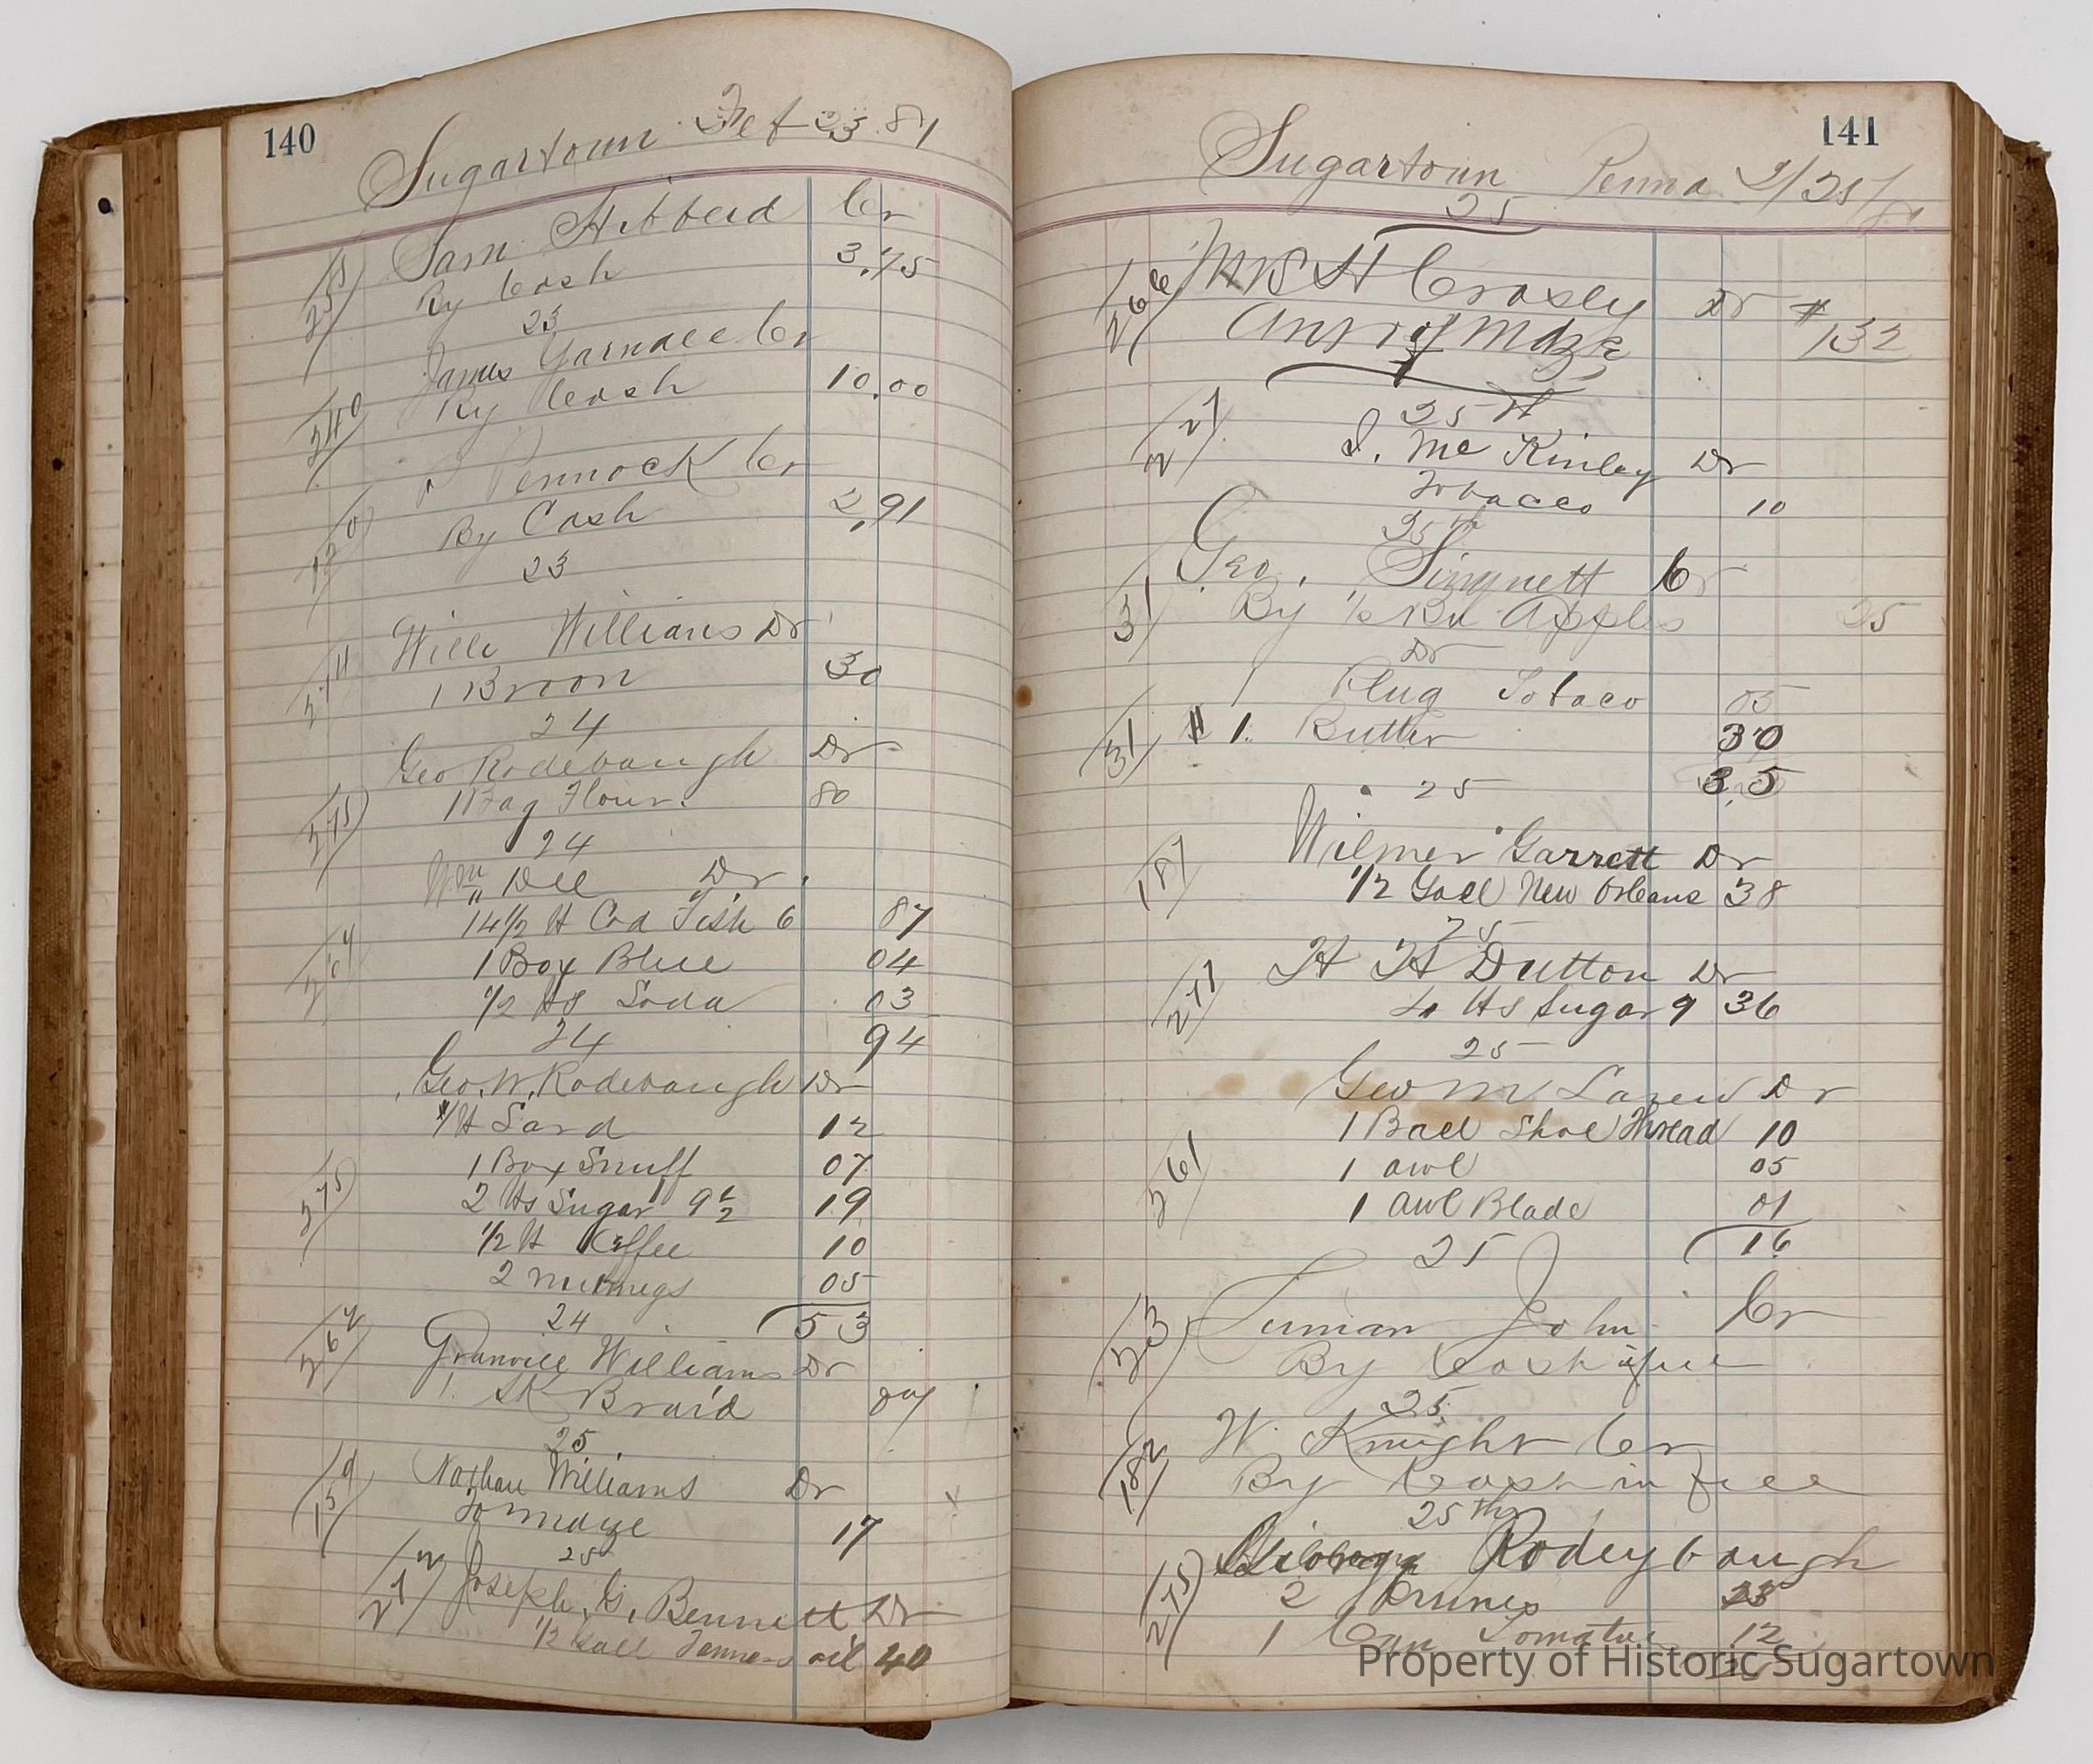 140
Sugartown Feb 23 81
Sam Hibberd Cr
25/15 By Cash 3,75
23
James Garnall Cr
240 By Cash 10,00
Pennock Cr
120 By Cash 2,91
23
Wille Williams Dr
1 Broom 30
24
Geo Rodebaugh Dr
275 1 Bag Flour. 80
24
Wm Dell Dr.
14 1/2 lb Cod Fish 6 87
264 1 Box Blue 04
1/2 lbs Soda 03
24 94
Geo. W. Rodebaugh Dr
1 lb Lard 12
1 Box Snuff 07
275 2 lbs Sugar 9 1/2 19
1/2 lb Coffee 10
2 nutmegs 05
24 53
262 Granvill Williams Dr
1 SK Braid 04
25
159 Nathan Williams Dr
To mdze 17
25
272 Joseph G. Bennett Dr
1/2 Gall Tanners oil 40
141
Sugartown Penna 2/25/81
25
266 Mrs H Crosley Dr $
Amt of Mdze 132
25th
227 J. McKinley Dr
Tobacco 10
25th
Geo. Singnett Cr
31 By 1/2 Bu Apples 25
Dr
1 Plug Tobaco 05
31 # 1 Butter 30
25 35
Wilmer Garrett Dr
187 1/2 Gall New Orleans 38
25
H H Dutton Dr
277 4 lbs Sugar 9 36
25
Geo M Lazen Dr
1 Ball Shoe Thread 10
261 1 awl 05
1 awl Blade 01
25 16
John Cr
By Cash in full
25
W. Knight Cr
182 By Cash in full
25th
Rodeybaugh
275 2 Prunes 23
1 Can Tomatoes 12
Property of Historic Sugartown